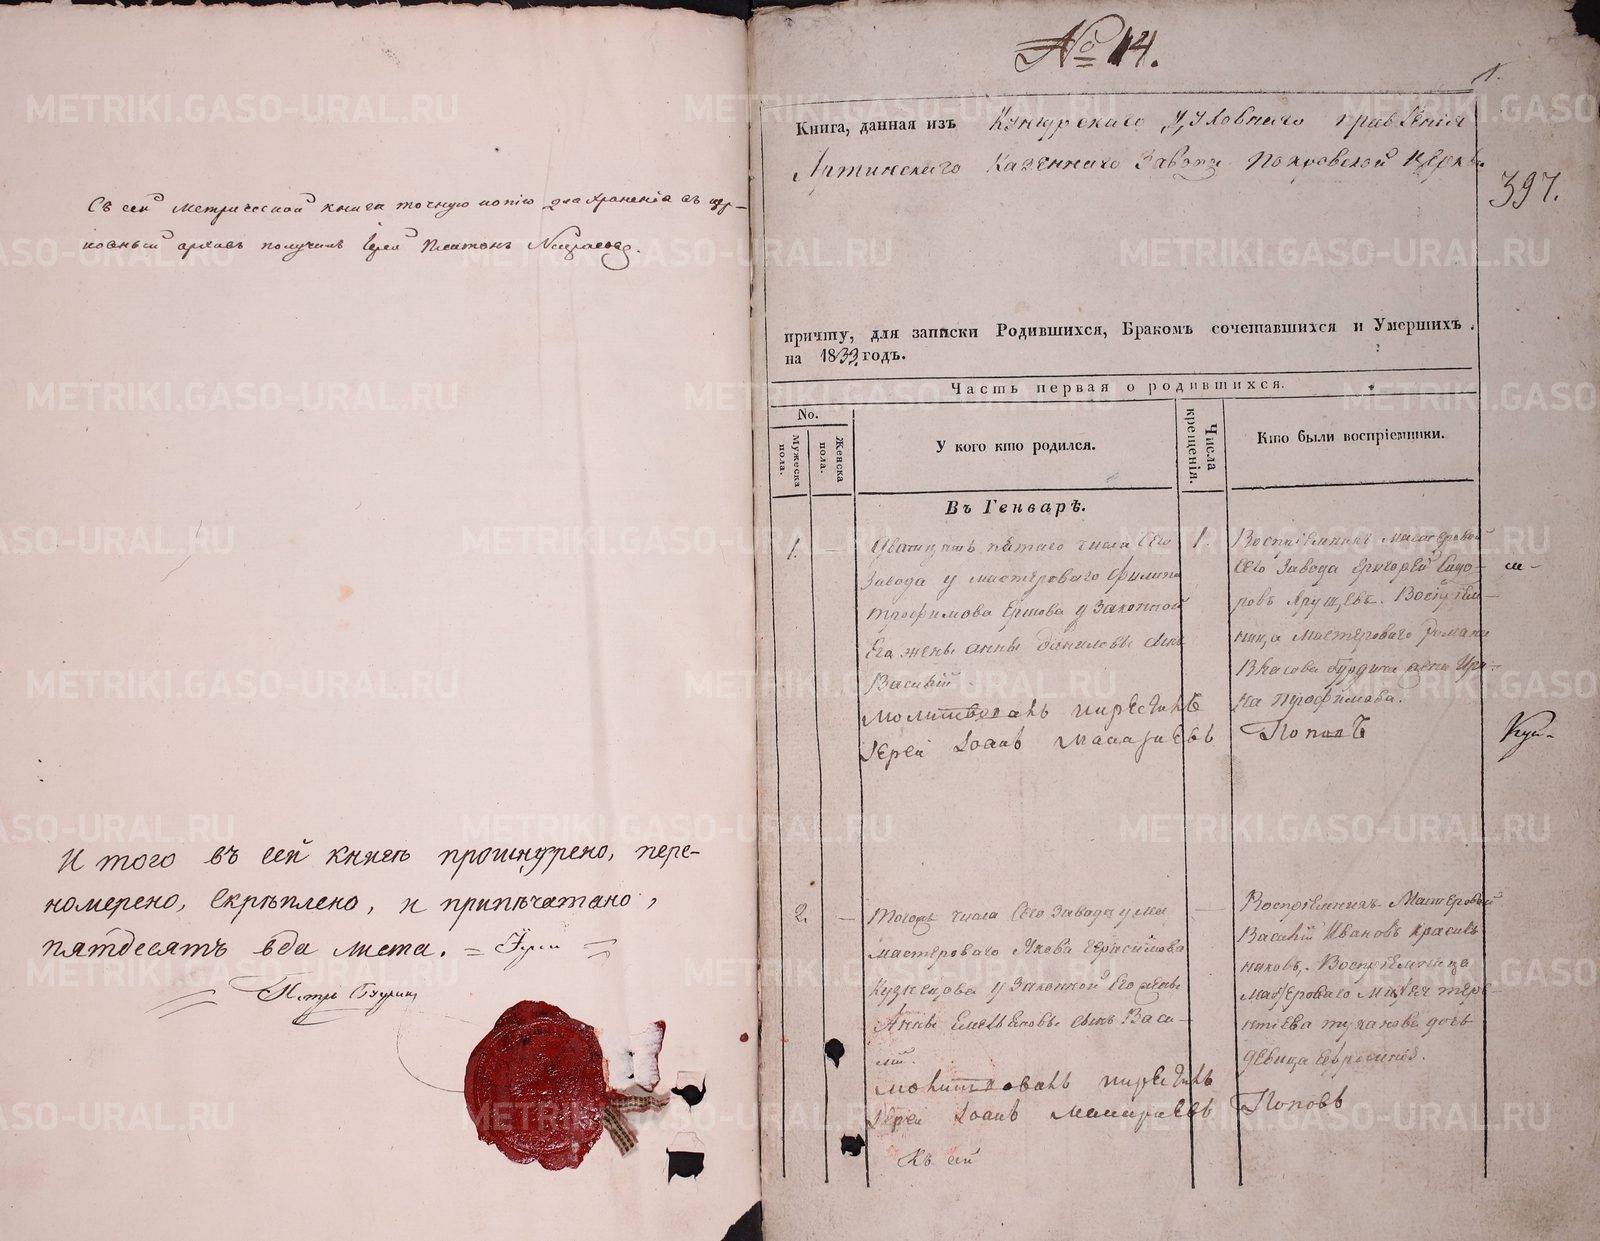 Съ сей метрической книги точную копію для храненія въ цер-
ковный архивъ получилъ Іерей Платонъ
И того въ сей книгѣ прошнурено, пере-
номерено, скрѣплено, и припѣчатано,
пятдесятъ два листа. = Іерей =
Петръ
№ 14.
1.
Книга, данная изъ Кунгурскаго Духовнаго правленія
Артинскаго Казеннаго Завода Покровской церкви
397.
причту, для записки Родившихся, Бракомъ сочетавшихся и Умершихъ
на 1839 годъ.
Часть первая о родившихся.
No.
Мужеска пола.
Женска пола.
У кого кто родился.
Числа крещенія.
Кто были воспріемники.
Въ Генварѣ.
1. —
Дватцать пятаго числа Сего
Завода у мастероваго Филипа
Трофимова Ершова у Законной
Его жены Анны Даниловы сынъ
Василій
Молитвовалъ и крестилъ
Іерей Іоанъ
1.
Воспріемникъ Мастеровой
Сего Завода Григорей Сидо-
ровъ Хрущевъ. Воспріем-
ница Мастероваго Романа
Власова жена Ири-
на Трофимова.
Поповъ
2. —
Тогожъ числа Сего Завода у ма
мастероваго Якова Герасимова
Кузнецова у Законной Его жены
Анны Емельяновы сынъ Васи-
лій.
Молитвовалъ и крестилъ
Іерей Іоанъ
—
Воспріемникъ Мастеровой
Василій Ивановъ Красиль
никовъ, Воспріемница
Мастероваго
нтіева дочь
девица Евросинія.
Поповъ
Къ сей